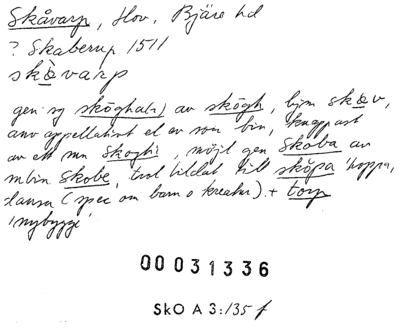 Skåvarp, Hov, Bjäre hd
? Skaberup 1511
skòvarp
gen sg skōghaɧ av skōgh, bym skòv,
anv appellativt el av son bin, knappast
av ett mn Skoghi, möjl gen Skoba av
mbin Skobe, trol bildat till skōpa 'hoppa,
dansa (spec om barn o kreatur) + torp
'nybygge'
00031336
SkO A 3:135 f